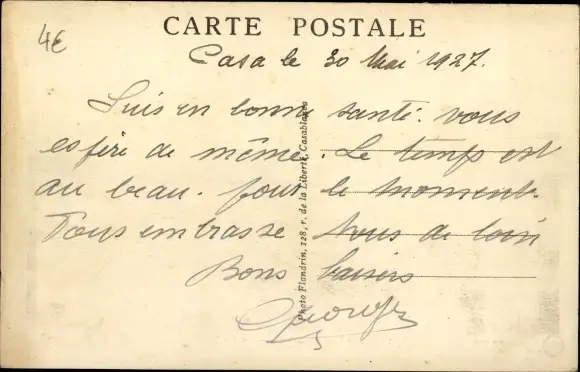 4€
CARTE POSTALE
Casa le 30 Mai 1927.
Suis en bonne santé. vous
espère de même. Le temps est
au beau. pour le moment.
Vous embrasse tous de loin
Bons baisers
Georges
Photo Flandrin, 128, r. de la Liberté, Casablanca